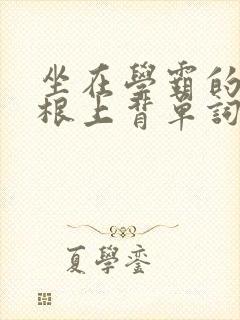 坐在學霸的
根上背單詞
夏學鑾